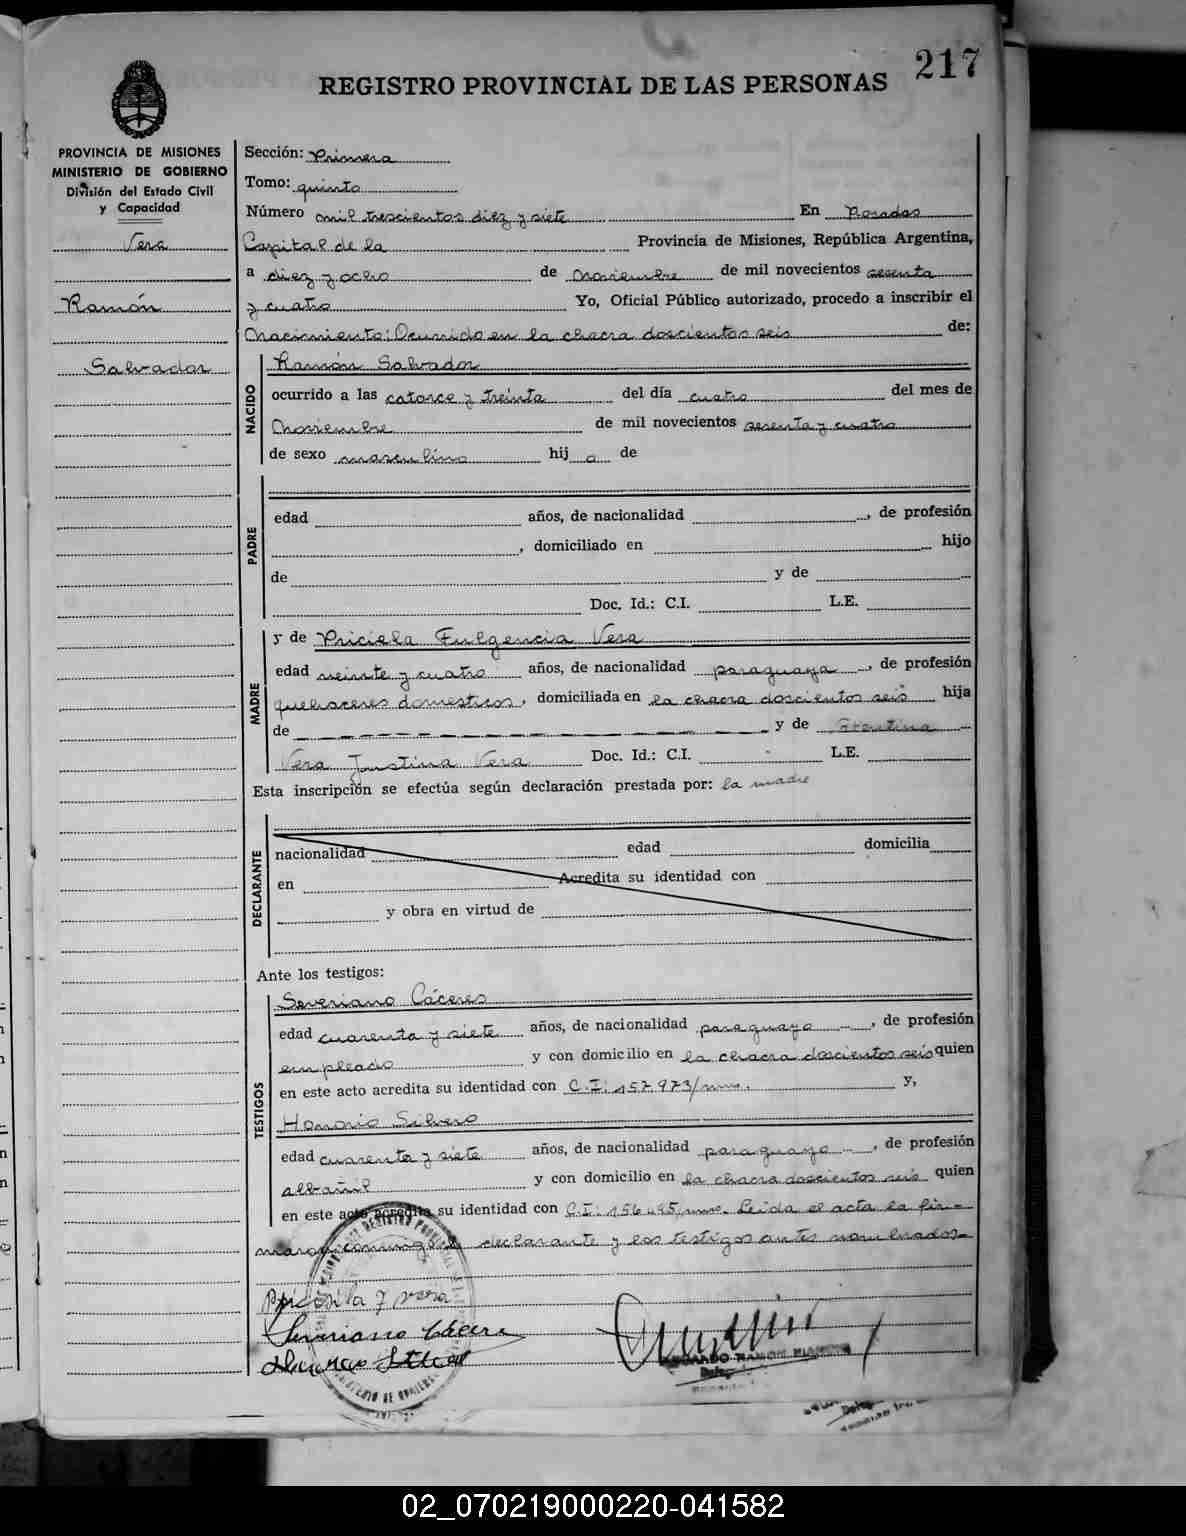 217
REGISTRO PROVINCIAL DE LAS PERSONAS
PROVINCIA DE MISIONES
MINISTERIO DE GOBIERNO
División del Estado Civil
y Capacidad
Vera
Ramón
Salvador
Sección: Primera
Tomo: quinto
Número mil trescientos diez y siete En Posadas
Capital de la Provincia de Misiones, República Argentina,
a diez y ocho de noviembre de mil novecientos sesenta
y cuatro Yo, Oficial Público autorizado, procedo a inscribir el
Nacimiento: Ocurrido en la chacra doscientos seis de:
NACIDO
Ramón Salvador
ocurrido a las catorce y treinta del día cuatro del mes de
Noviembre de mil novecientos sesenta y cuatro
de sexo masculino hij o de
PADRE
edad años, de nacionalidad , de profesión
, domiciliado en hijo
de y de
Doc. Id.: C.I. L.E.
MADRE
y de Priciela Fulgencia Vera
edad veinte y cuatro años, de nacionalidad paraguaya , de profesión
quehaceres domesticos, domiciliada en la chacra doscientos seis hija
de y de
Vera Justina Vera Doc. Id.: C.I. L.E.
Esta inscripción se efectúa según declaración prestada por: la madre
DECLARANTE
nacionalidad edad domicilia
en Acredita su identidad con
y obra en virtud de
Ante los testigos:
TESTIGOS
Severiano Cáceres
edad cuarenta y siete años, de nacionalidad paraguayo , de profesión
empleado y con domicilio en la chacra doscientos seis quien
en este acto acredita su identidad con C.I: 157.973/mns. y,
Honorio Silvero
edad cuarenta y siete años, de nacionalidad paraguayo , de profesión
albañil y con domicilio en la chacra doscientos seis quien
en este acto acredita su identidad con C.I: Leida el acta la fir-
maron conmigo declarante y los testigos antes nombrados.
Severiano Cáceres
RAMON
02_070219000220-041582